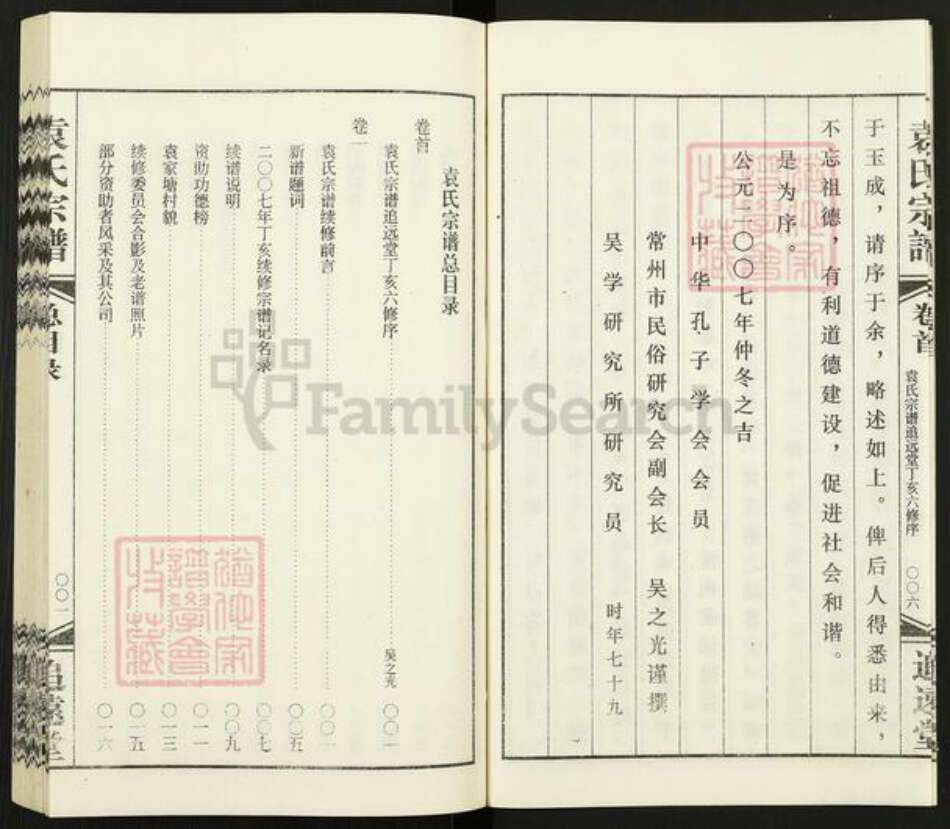 袁氏宗谱
卷首
袁氏宗谱追远堂丁亥六修序
〇〇六
追远堂
于玉成，请序于余，略述如上。俾后人得悉由来，
不忘祖德，有利道德建设，促进社会和谐。
是为序。
公元二〇〇七年仲冬之吉
中华孔子学会会员
常州市民俗研究会副会长 吴之光谨撰
吴学研究所研究员 时年七十九
袁氏宗谱总目录
卷首
袁氏宗谱追远堂丁亥六修序 吴之光 〇〇一
卷一
袁氏宗谱续修前言 〇〇一
新谱题词 〇〇五
二〇〇七年丁亥续修宗谱记名录 〇〇七
续谱说明 〇〇九
资助功德榜 〇一一
袁家塘村貌 〇一三
续修委员会合影及老谱照片 〇一五
部分资助者风采及其公司 〇一六
袁氏宗谱
总目录
〇〇一
追远堂
FamilySearch